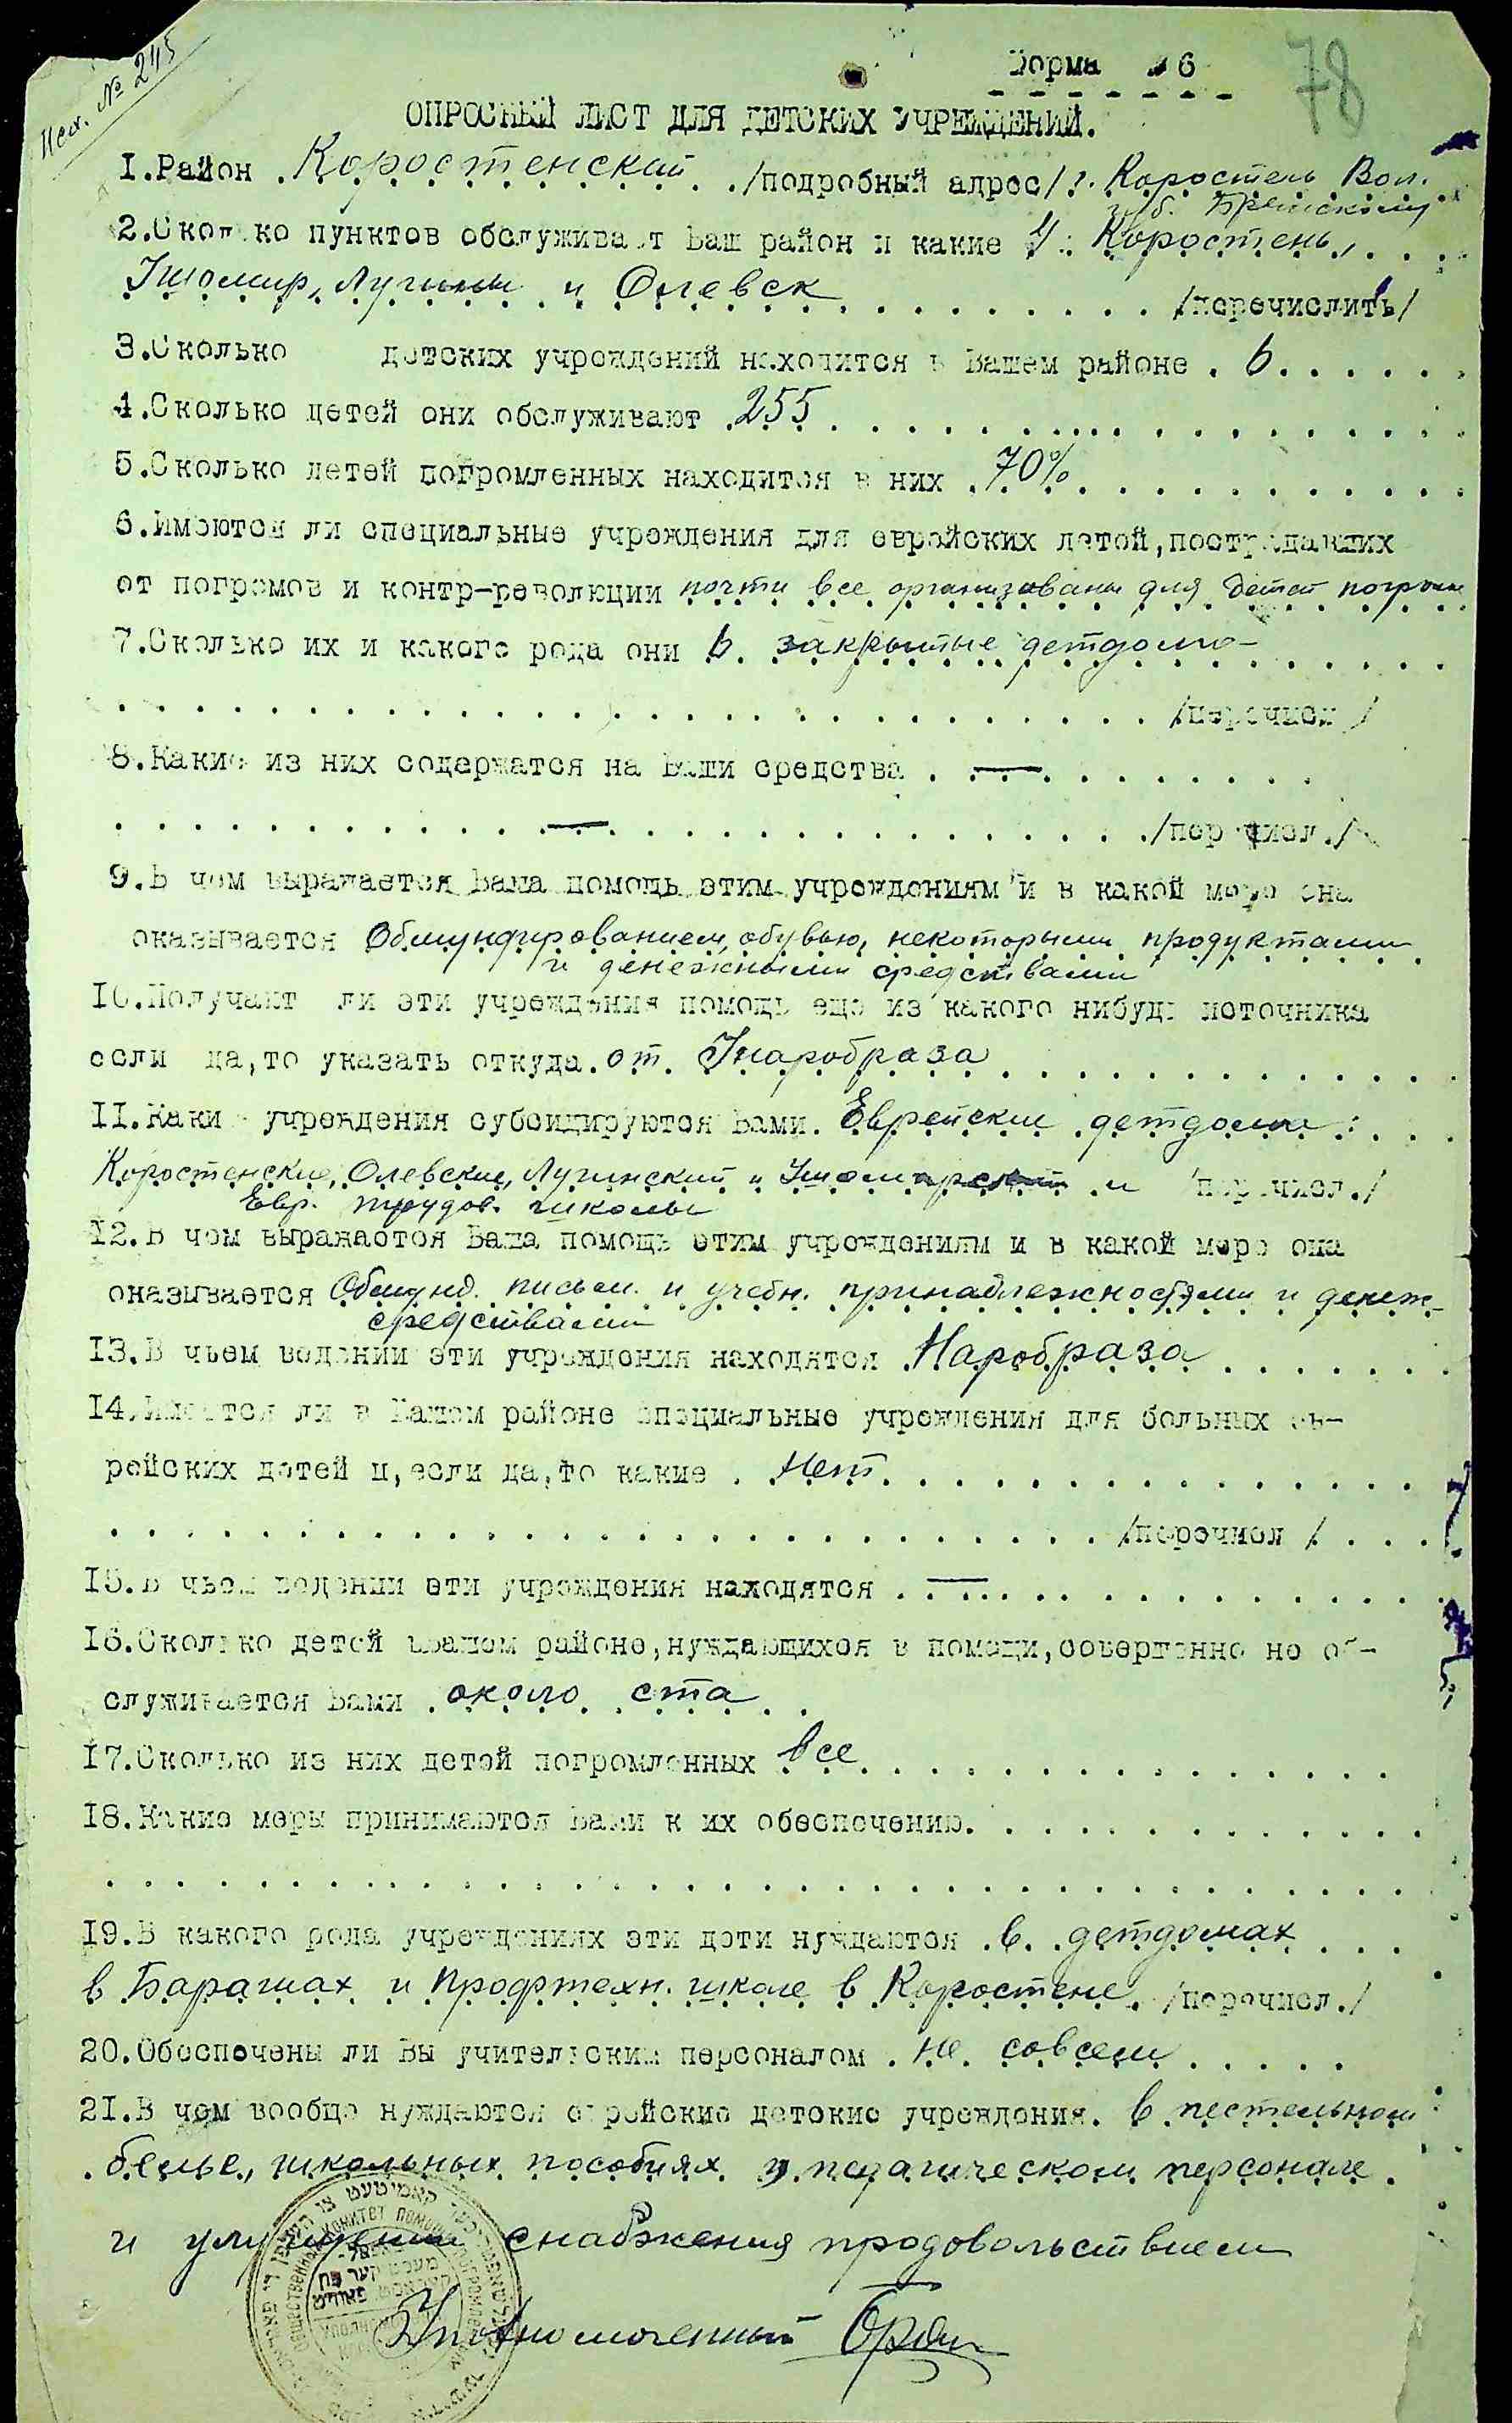 Исх. № 245
78
Форма № 6
ОПРОСНЫЙ ЛИСТ ДЛЯ ДЕТСКИХ УЧРЕЖДЕНИЙ.
1.Район Коростенский /подробный адрес/ г. Коростень Вол.
губ.
2.Сколько пунктов обслуживает Ваш район и какие 4: Коростень,
Ушомир, Лугины и Олевск /перечислить/
3.Сколько детских учреждений находится в Вашем районе . 6.
4.Сколько детей они обслуживают 255
5.Сколько детей погромленных находится в них 70%
6.Имеются ли специальные учреждения для еврейских детей,пострадавших
от погромов и контр-революции почти все организованы для детей погром
7.Сколько их и какого рода они 6. закрытые детдома
/перечисл /
8.Какие из них содержатся на Ваши средства . —
— /перечисл./
9.В чем выражается Ваша помощь этим учреждениям и в какой мере она
оказывается Обмундированием, обувью, некоторыми продуктами
и денежными средствами
10.Получают ли эти учреждения помощь еще из какого нибудь источника
если да,то указать откуда. от Унаробраза
11.Какие учреждения субсидируются Вами. Еврейские детдома:
Коростенские, Олевские, Лугинский и Ушомирский и /перечисл./
Евр. трудов. школы
12.В чем выражается Ваша помощь этим учреждениям и в какой мере она
оказывается Обмунд. письм. и учебн. принадлежностями и денеж-
средствами
13.В чьем ведении эти учреждения находятся Наробраза
14.Имеются ли в Вашем районе специальные учреждения для больных ев-
рейских детей и,если да,то какие . Нет
/перечисл /
15.В чьем ведении эти учреждения находятся . —
16.Сколько детей в Вашем районе,нуждающихся в помощи,совершенно не об-
служивается Вами . около ста
17.Сколько из них детей погромленных все
18.Какие меры принимаются Вами к их обеспечению.
19.В каких рода учреждениях эти дети нуждаются . в. детдомах
в Барашах и Профтехн. школе в Коростене /перечисл./
20.Обеспечены ли Вы учительским персоналом . не совсем
21.В чем вообще нуждаются еврейские детские учреждения. в постельном
белье, школьных пособиях и педагическом персонале.
и улучшении снабжения продовольствием
Уполномоченный